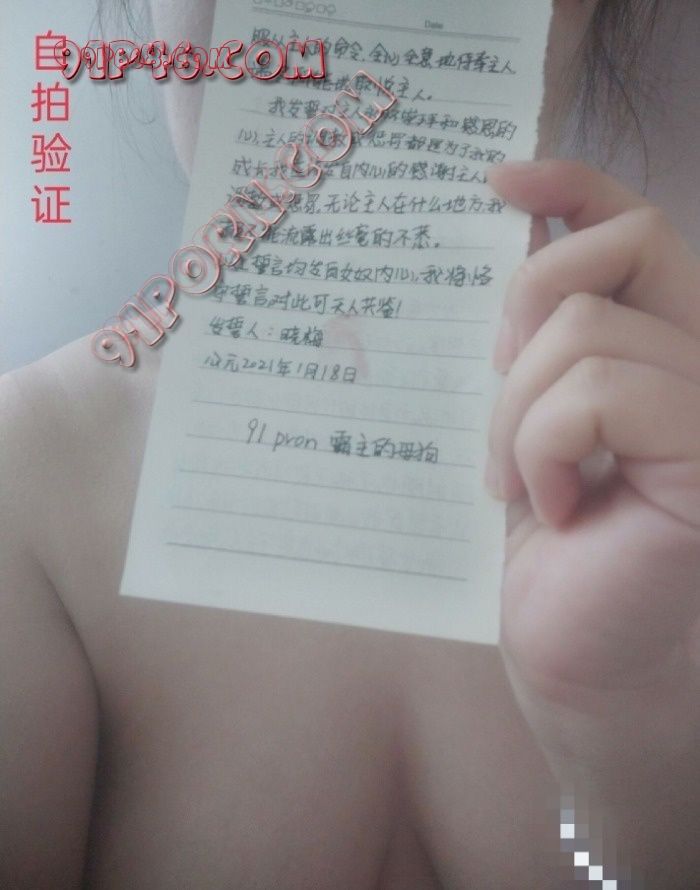 自拍验证
91P46.COM
91PORN.COM
Date
主人的命令,全心全意地侍奉主人
主人。
我发誓对主人
和感恩的
心,主人的
都是为了我的
成长我
发自内心的感谢主人
无论主人在什么地方,我
流露出丝毫的不悉。
誓言均发自女奴内心,我将恪
守誓言,对此可天人共鉴!
发誓人:晓梅
公元2021年1月18日
91 pron 霸主的母狗